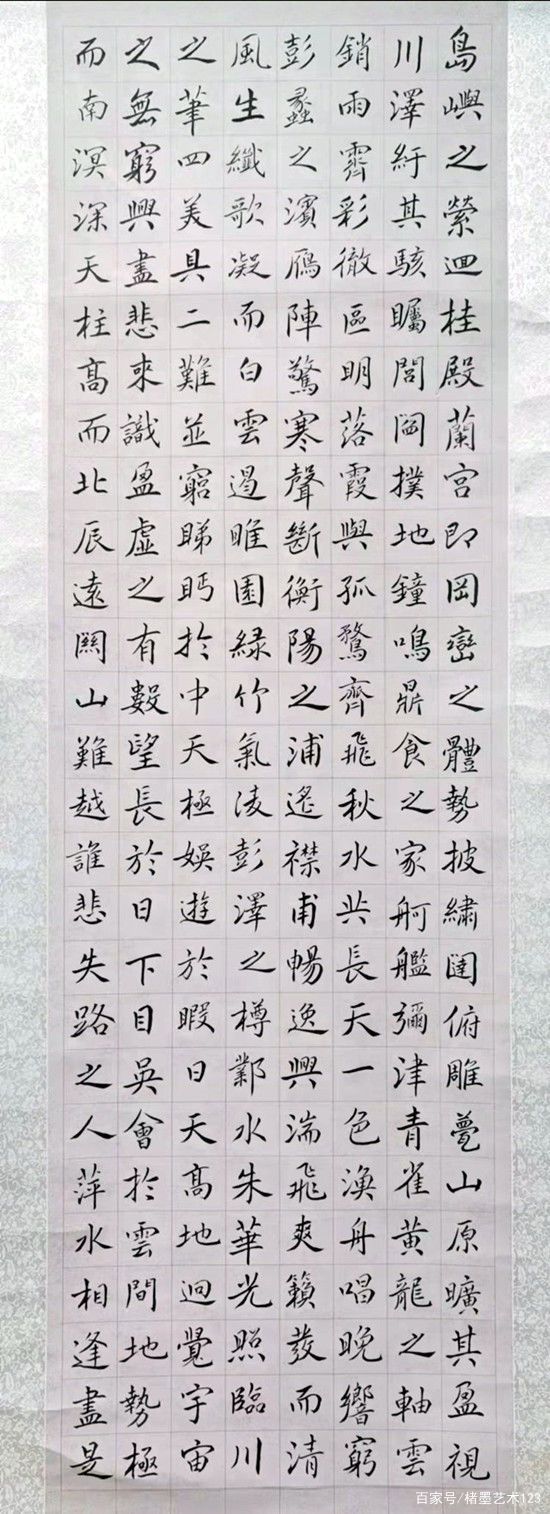 島嶼之縈迴桂殿蘭宮即岡巒之體勢披繡闥俯雕甍山原曠其盈視
川澤紆其駭矚閭閻撲地鐘鳴鼎食之家舸艦彌津青雀黃龍之軸雲
銷雨霽彩徹區明落霞與孤鶩齊飛秋水共長天一色漁舟唱晚響窮
彭蠡之濱鴈陣驚寒聲斷衡陽之浦遙襟甫暢逸興湍飛爽籟發而清
風生纖歌凝而白雲遏睢園綠竹氣凌彭澤之樽鄴水朱華光照臨川
之筆四美具二難並窮睇眄於中天極娛遊於暇日天高地迥覺宇宙
之無窮興盡悲來識盈虛之有數望長於日下目吳會於雲間地勢極
而南溟深天柱高而北辰遠關山難越誰悲失路之人萍水相逢盡是
百家号/楮墨艺术123